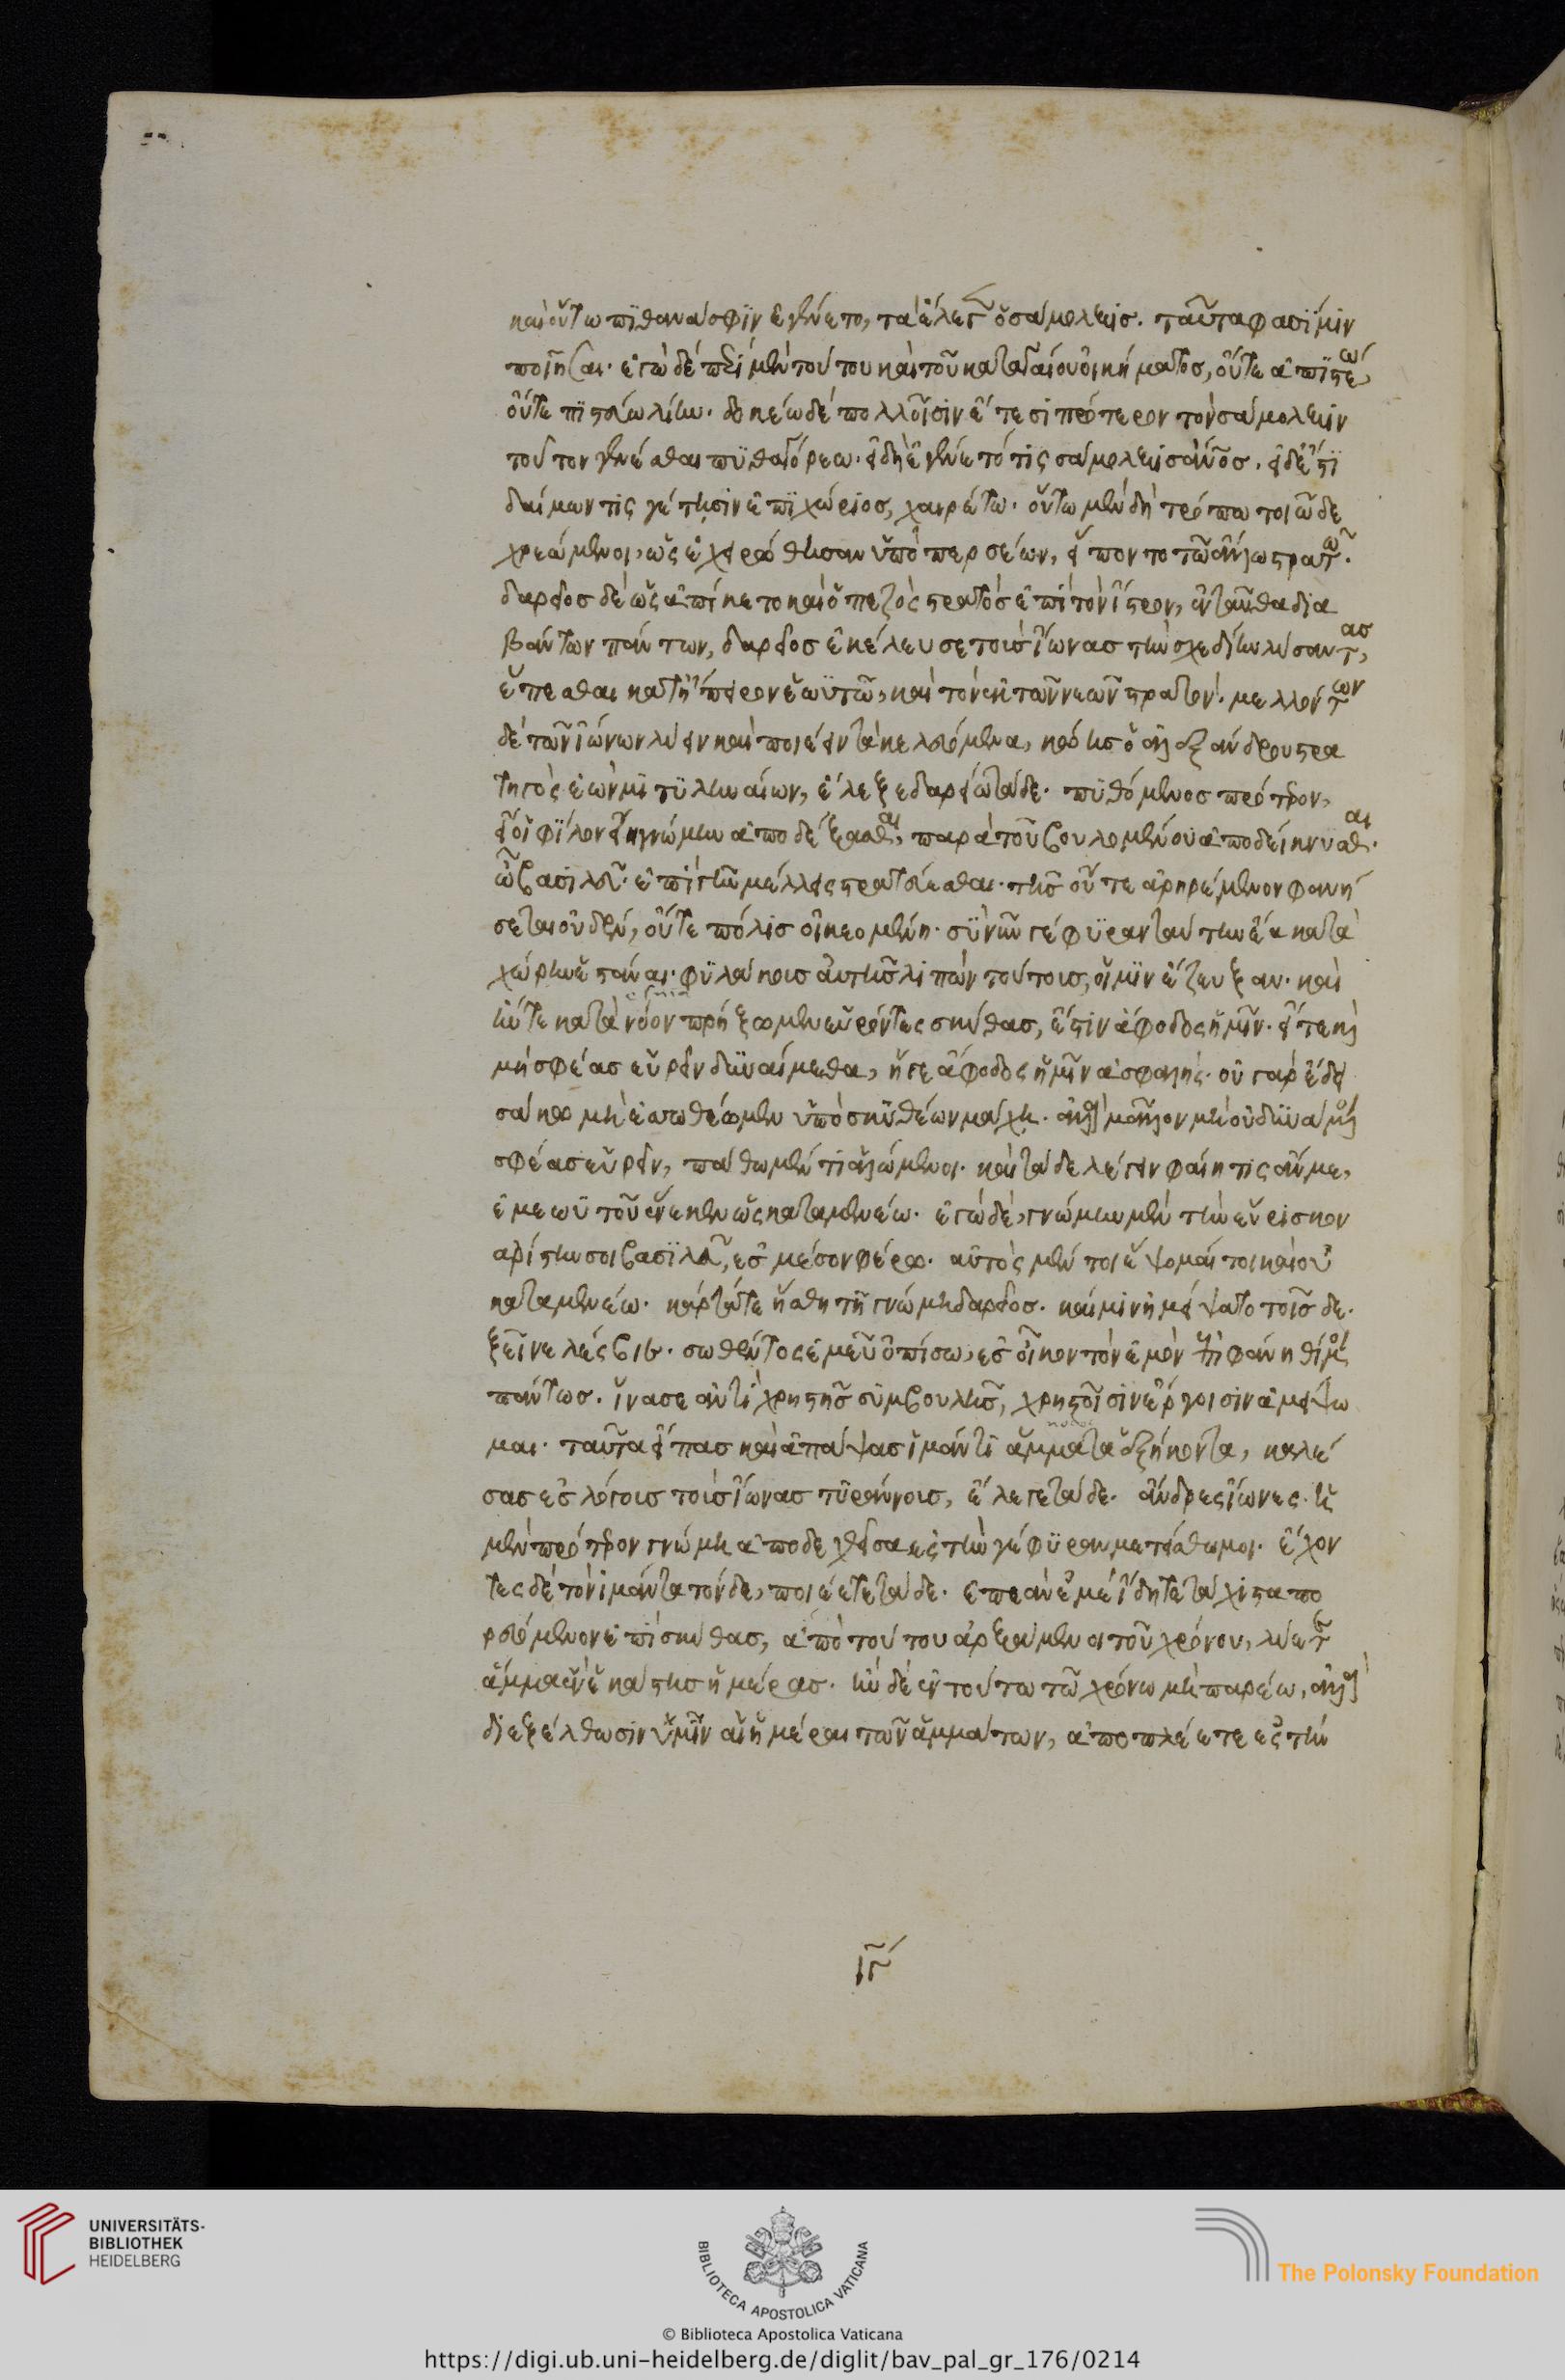 καὶ οὕτω πιθανά σφιν ἐγένετο, τὰ ἔλεγε ὁ σάμολξις. ταῦτα φασί μιν
ποιῆσαι. ἐγὼ δὲ περὶ μὲν τούτου καὶ τοῦ καταγαίου οἰκήματος, οὔτε ἀπιστέω,
οὔτε πιστεύω λίην. δοκέω δὲ πολλοῖσιν ἔτεσι πρότερον τὸν σάμολξιν
τοῦτον γενέσθαι πυθαγόρεω. εἰ δὴ ἐγένετό τις σάμολξις ἄνος. εἰ δέ ἐστι
δαίμων τις γέτῃσιν ἐπιχώριος, χαιρέτω. οὗτω μὲν δὴ τρόπω τοιῶδε
χρεώμενοι, ὡς ἐχειρώθησαν ὑπὸ περσέων, εἵποντο τῶ ἄλλω στρατῶ.
δαρεῖος δὲ ὡς ἀπίκετο καὶ ὁ πεζὸς στρατὸς ἐπὶ τὸν ἴστρον, ἐνταῦθα δια
βάντων πάντων, δαρεῖος ἐκέλευσε τοὺς ἴωνας τὴν σχεδίην λύσαντας,
ἕπεσθαι κατ' ἤπειρον ἑωϋτῶ, καὶ τὸν ἐκ τῶν νεῶν στρατόν. μελλόντων
δὲ τῶν ἰώνων λύειν καὶ ποιέειν τὰ κελευόμενα, κώης ὁ ἀλεξάνδρου στρα
τηγὸς ἐὼν μιτυληναίων, ἔλεξε δαρείω τάδε. πυθόμενος πρότερον,
εἴ οἱ φίλον εἴη γνώμην ἀποδέξασθαι, παρὰ τοῦ βουλομένου ἀποδείκνυσθαι.
ὦ βασιλεῦ. ἐπὶ γῆν μέλλεις στρατεύεσθαι. τῆς οὔτε ἀρηρέμενον φανή
σεται οὐδὲν, οὔτε πόλις οἰκεομένη. σὺ νῦν γέφυραν ταύτην ἔα κατὰ
χώρην ἑστάναι. φυλάκους αὐτῆς λιπὼν τούτους, οἵ μιν ἔζευξαν. καὶ
ἤν τε κατὰ νόον πρήξωμεν εὑρόντες σκύθας, ἔστιν ἄφοδος ἡμῖν. εἴτε καὶ
μή σφεας εὑρεῖν δυναίμεθα, ἥγε ἄφοδος ἡμῖν ἀσφαλής. οὐ γὰρ ἔδει
σά κω μὴ ἑσσωθέωμεν ὑπὸ σκυθέων μάχη. ἀλλὰ μᾶλλον μὴ οὐ δυνάμενοι
σφέας εὑρεῖν, πάθωμέν τι ἀλώμενοι. καὶ τάδε λέγειν φαίη τις ἄν με,
ἐμεωυτοῦ εἵνεκεν ὡς καταμενέω. ἐγὼ δὲ, γνώμην μὲν τὴν εὕρισκον
ἀρίστην σοι βασιλεῦ, ἐς μέσον φέρω. αὐτὸς μέν τοι ἕψομαί τοι καὶ οὐ
καταμενέω. κάρτά τε ἥσθη τῆ γνώμη δαρεῖος. καί μιν ἠμείψατο τοῖσδε.
ξεῖνε λέσβιε. σωθέντος ἐμεῦ ὀπίσω, ἐς οἶκον τὸν ἐμὸν ἐπιφάνηθί μοι
πάντως. ἵνα σε ἀντὶ χρηστῆς συμβουλίης, χρηστοῖσιν ἔργοισιν ἀμείψω
μαι. ταῦτα εἴπας καὶ ἀπάψας ἱμάντι ἅμματα ἑξήκοντα, καλέ
σας ἐς λόγους τοὺς ἰώνας τυράννους, ἔλεγε τάδε. ἄνδρες ἴωνες. ἡ
μὲν πρότερον γνώμη ἀποδεχθεῖσα ἐς τὴν γέφυραν μετείσθω μοι. ἔχον
τες δὲ τὸν ἱμάντα τόνδε, ποιέετε τάδε. ἐπεὰν ἐμὲ ἴδητε τάχιστα πο
ρευόμενον ἐπὶ σκύθας, ἀπὸ τούτου ἀρξάμενοι τοῦ χρόνου, λύετε
ἅμμα ἓν ἑκάστης ἡμέρας. ἢν δὲ ἐν τούτω τῶ χρόνω μὴ παρέω, ἀλλὰ
διεξέλθωσιν ὑμῖν αἱ ἡμέραι τῶν ἁμμάτων, ἀποπλέετε ἐς τὴν
ιγ
UNIVERSITÄTS-
BIBLIOTHEK
HEIDELBERG
BIBLIOTECA APOSTOLICA VATICANA
The Polonsky Foundation
© Biblioteca Apostolica Vaticana
https://digi.ub.uni-heidelberg.de/diglit/bav_pal_gr_176/0214